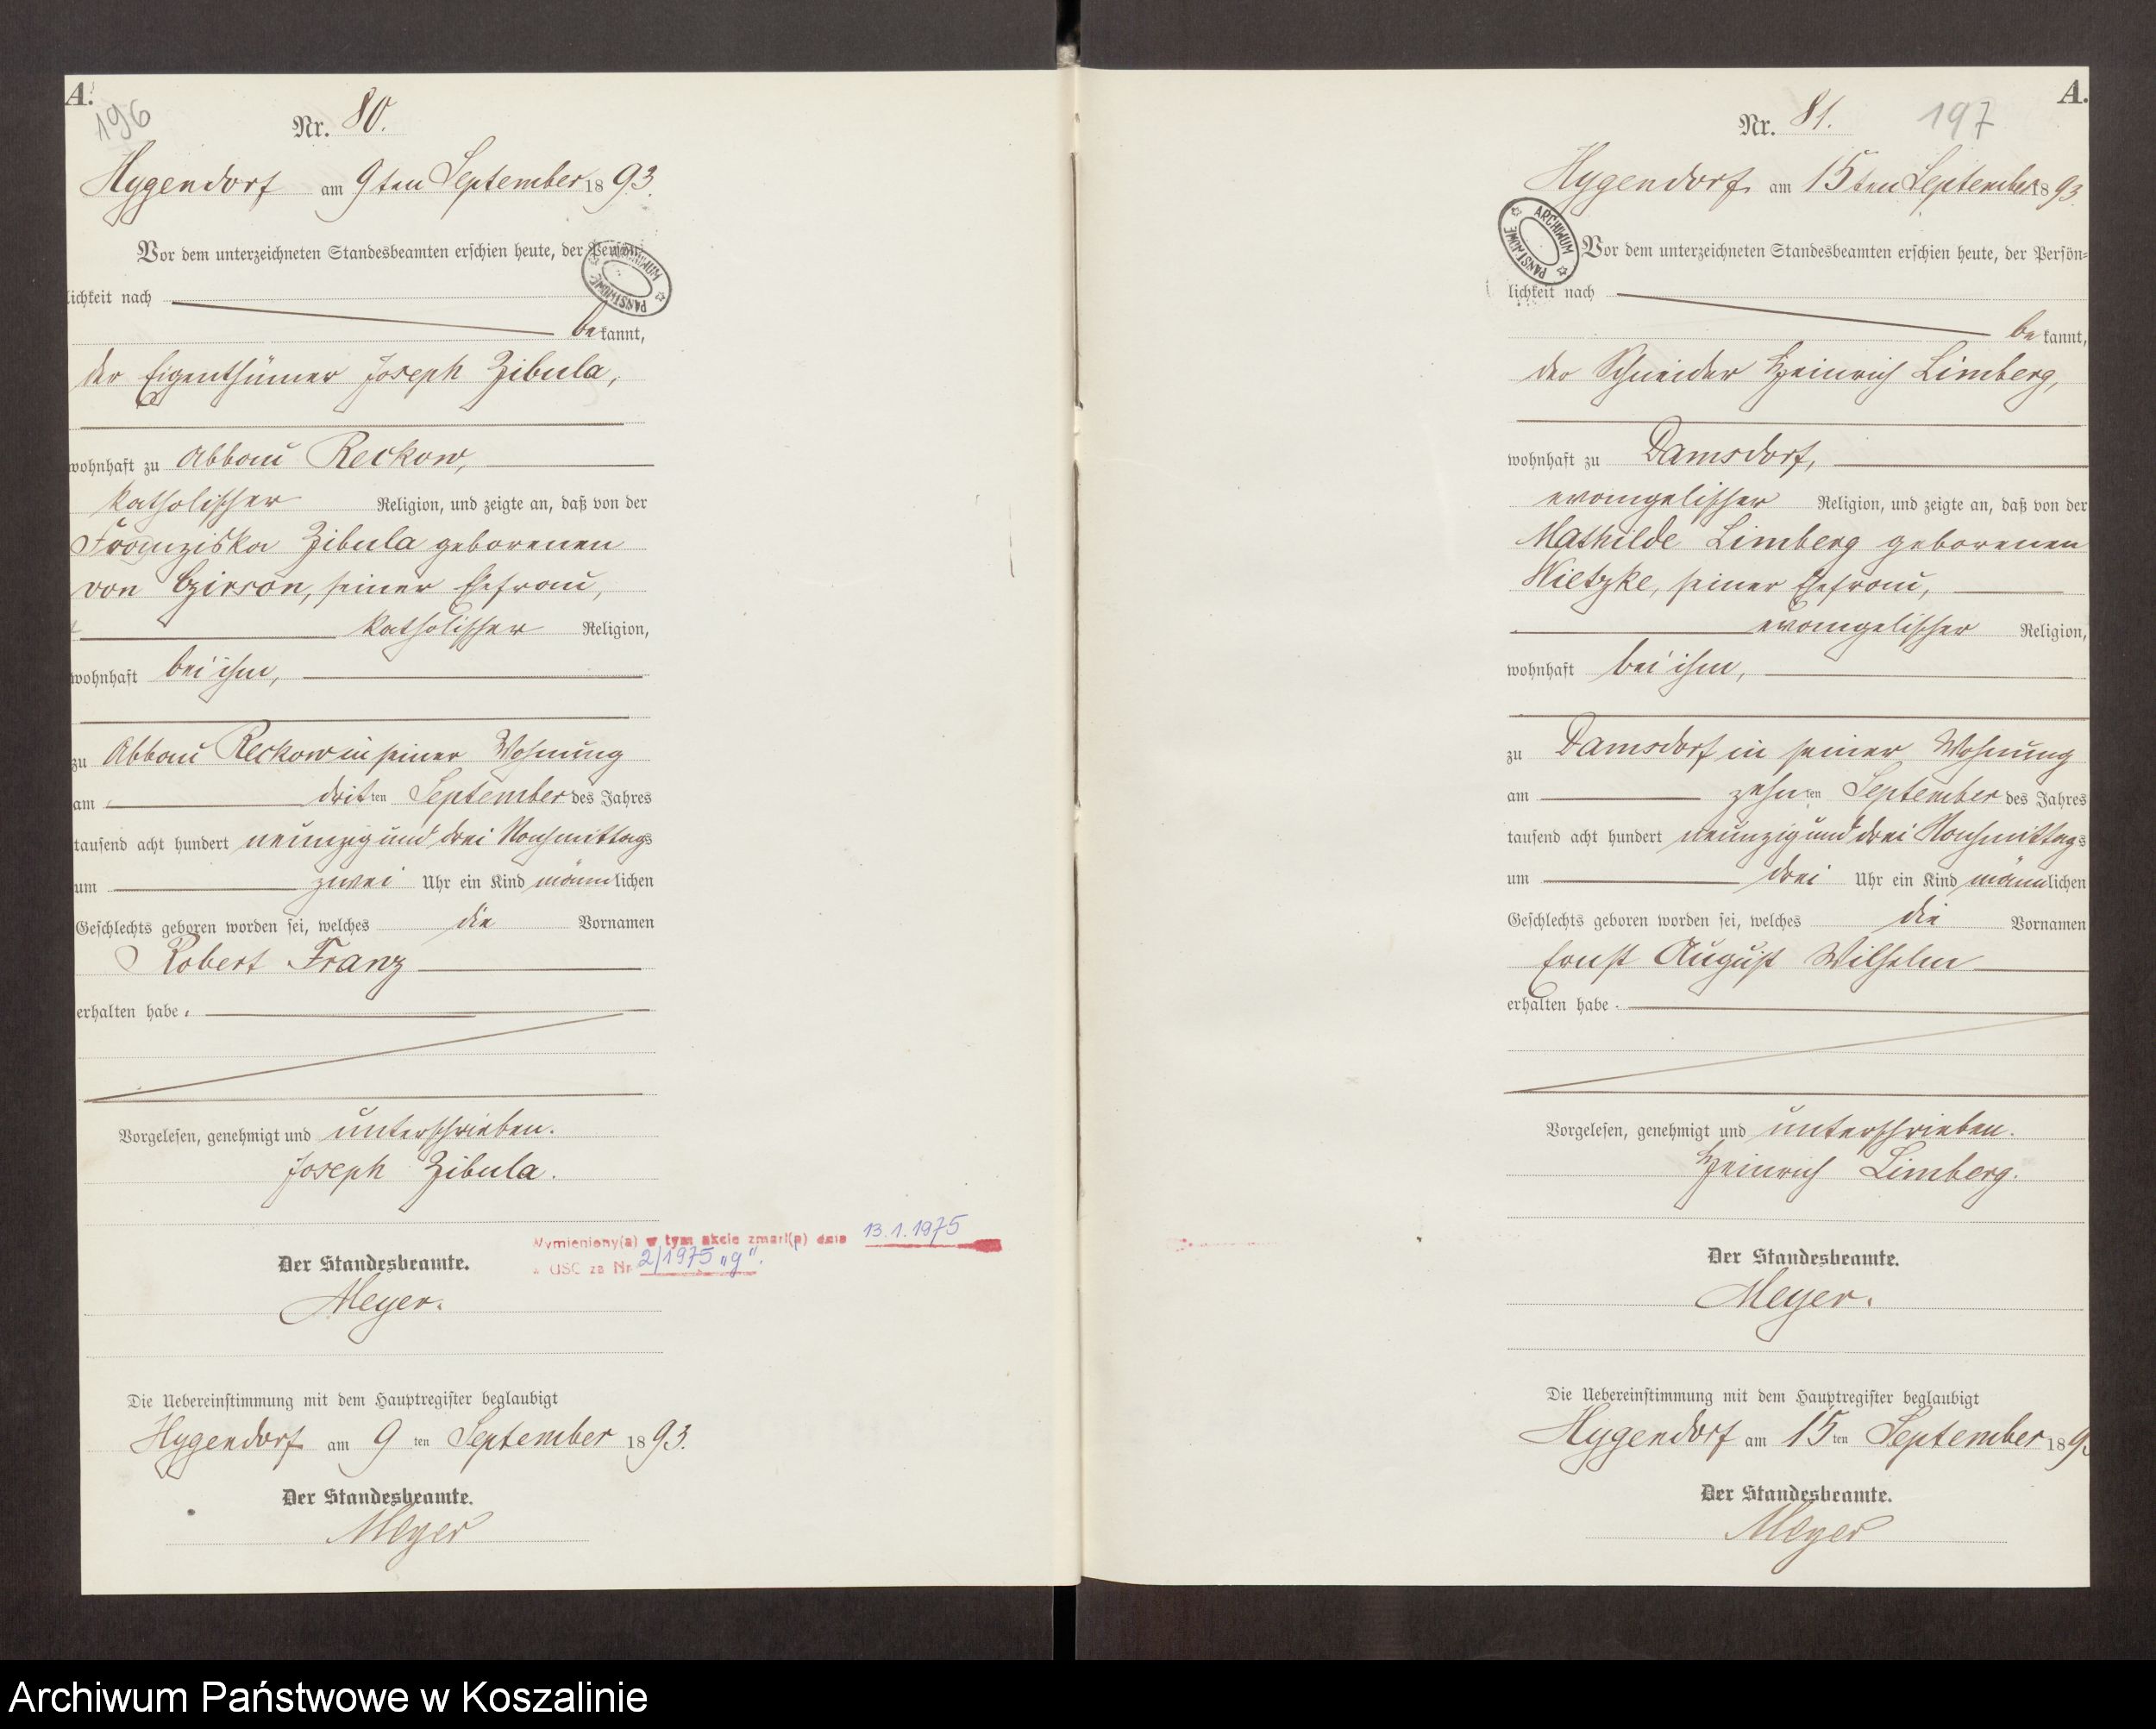 A.
196
Nr. 80.
Hygendorf am 9ten September 1893.
Vor dem unterzeichneten Standesbeamten erschien heute, der Persön-
lichkeit nach
bekannt,
der Eigenthümer Joseph Zibula,
wohnhaft zu Abbau Reckow,
katholischer Religion, und zeigte an, daß von der
Franziska Zibula geborenen
von Czirson, seiner Ehefrau,
katholischer Religion,
wohnhaft bei ihm,
zu Abbau Reckow in seiner Wohnung
am dritten September des Jahres
tausend acht hundert neunzig und drei Nachmittags
um zwei Uhr ein Kind männlichen
Geschlechts geboren worden sei, welches die Vornamen
Robert Franz
erhalten habe.
Vorgelesen, genehmigt und unterschrieben.
Joseph Zibula.
Wymieniony(a) w tym akcie zmarł(a) dnia 13.1.1975
USC za Nr 2/1975 „g".
Der Standesbeamte.
Meyer.
Die Uebereinstimmung mit dem Hauptregister beglaubigt
Hygendorf am 9ten September 1893.
Der Standesbeamte.
Meyer
ARCHIWUM PAŃSTWOWE
A.
197
Nr. 81.
Hygendorf am 15ten September 1893.
ARCHIWUM PAŃSTWOWE
Vor dem unterzeichneten Standesbeamten erschien heute, der Persön-
lichkeit nach
bekannt,
der Schneider Heinrich Limberg,
wohnhaft zu Damsdorf,
evangelischer Religion, und zeigte an, daß von der
Mathilde Limberg geborenen
Wietzke, seiner Ehefrau,
evangelischer Religion,
wohnhaft bei ihm,
zu Damsdorf in seiner Wohnung
am zehnten September des Jahres
tausend acht hundert neunzig und drei Nachmittags
um drei Uhr ein Kind männlichen
Geschlechts geboren worden sei, welches die Vornamen
Ernst August Wilhelm
erhalten habe.
Vorgelesen, genehmigt und unterschrieben.
Heinrich Limberg.
Der Standesbeamte.
Meyer.
Die Uebereinstimmung mit dem Hauptregister beglaubigt
Hygendorf am 15ten September 1893
Der Standesbeamte.
Meyer
Archiwum Państwowe w Koszalinie